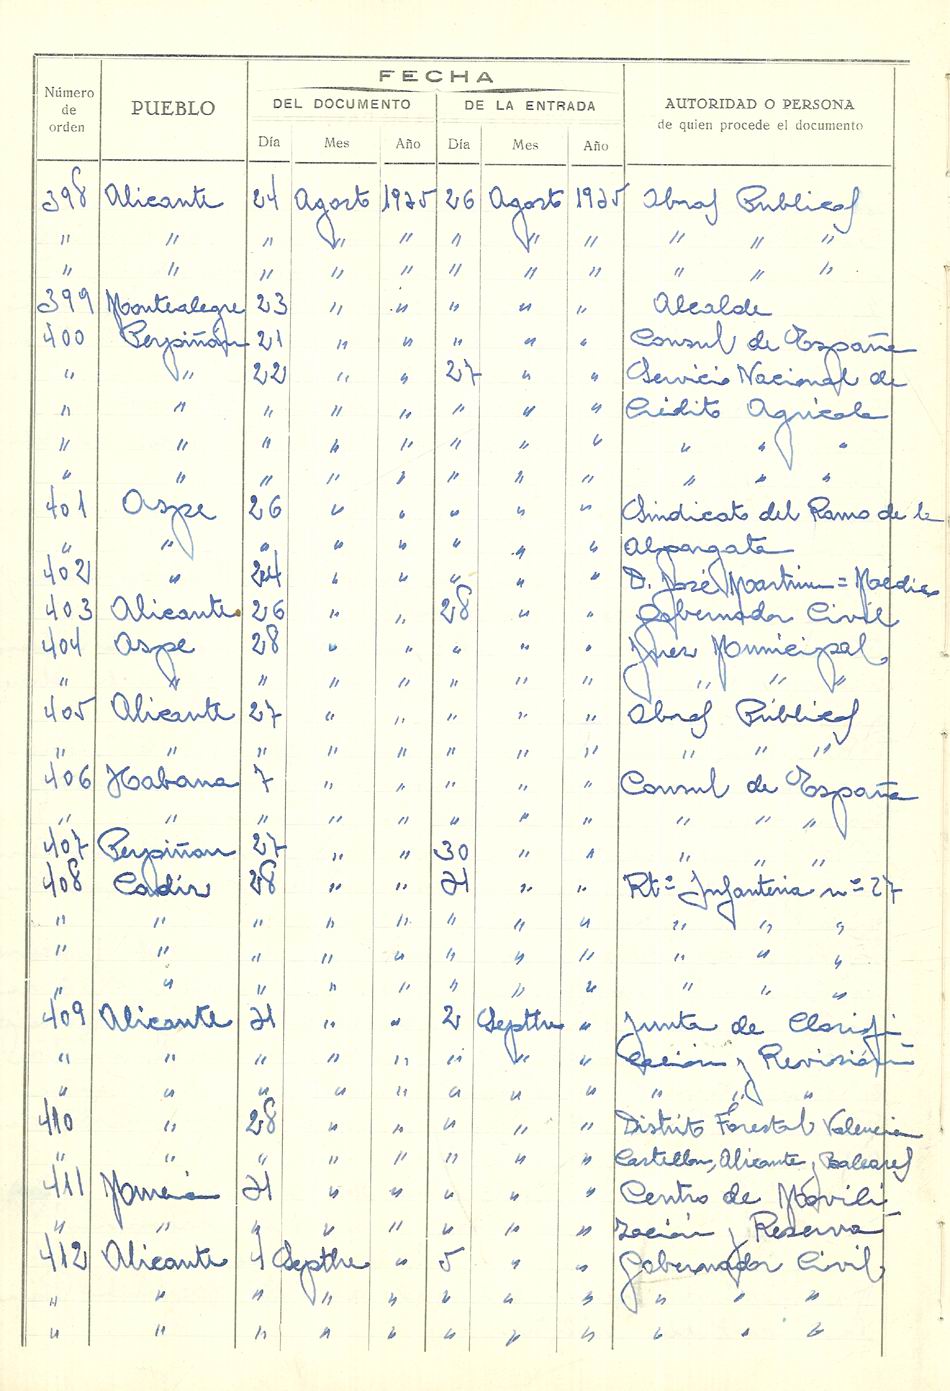 FECHA
Número de orden PUEBLO DEL DOCUMENTO DE LA ENTRADA AUTORIDAD O PERSONA de quien procede el documento
Día Mes Año Día Mes Año
398 Alicante 24 Agosto 1935 26 Agosto 1935 Obras Públicas
" " " " " " " " " " "
" " " " " " " " " " "
399 Montealegre 23 " " " " " Alcalde
400 Perpiñán 21 " " " " " Consul de España
" " 22 " " 27 " " Servicio Nacional de
" " " " " " " " Crédito Agrícola
" " " " " " " " " " "
" " " " " " " " " " "
401 Aspe 26 " " " " " Sindicato del Ramo de la
" " " " " " " " Alpargata
402 " 24 " " " " " D. José Martinez = Médico
403 Alicante 26 " " 28 " " Gobernador Civil
404 Aspe 28 " " " " " Juez Municipal
" " " " " " " " " " "
405 Alicante 27 " " " " " Obras Públicas
" " " " " " " " " " "
406 Habana 7 " " " " " Consul de España
" " " " " " " " " " "
407 Perpiñan 27 " " 30 " " " " "
408 Cadiz 28 " " 31 " " Rtº Infanteria nº 27
" " " " " " " " " " "
" " " " " " " " " " "
" " " " " " " " " " "
409 Alicante 31 " " 2 Septbre " Junta de Clasifi-
" " " " " " " " cación y Revisión
" " " " " " " " " " "
410 " 28 " " " " " Distrito Forestal Valencia
" " " " " " " " Castellon, Alicante y Baleares
411 Murcia 31 " " " " " Centro de Movili-
" " " " " " " " zación y Reserva
412 Alicante 4 Septbre " 5 " " Gobernador Civil
" " " " " " " " " " "
" " " " " " " " " " "